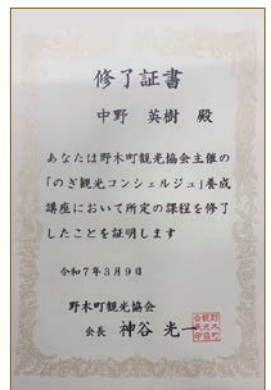 修了証書
中野 英樹 殿
あなたは野木町観光協会主催の
「のぎ観光コンシェルジュ」養成
講座において所定の課程を修了
したことを証明します
令和7年3月9日
野木町観光協会
会長 神谷 光一